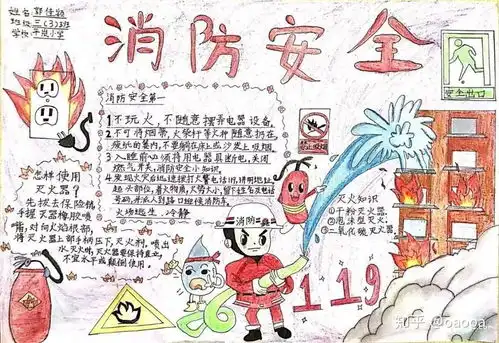 姓名 郭佳颖
班级 三(3)班
学校 平岚小学
消防安全
安全出口
消防安全第一
1 不玩火,不随意摆弄电器设备。
2 不可将烟蒂,火柴杆等火种随意扔在
废纸的篓内,不要躺在床上或沙发上吸烟
3 入睡前必须将用电器具断电,关闭
燃气开关,消防安全小知识
4 发现火灾应迅速拨打火警电话119,讲明地址
起火部位,着火物质,火势大小,留下姓名及电话
号码,并派人到路口迎候消防车。
火场逃生,冷静
禁止吸烟
怎样使用
灭火器?
先拔去保险销
手握灭器橡胶喷
嘴,对向火焰根部,
将灭火器上部手柄压下,灭火剂,喷出
水灭火时,灭火器要保持直立,
不宜水平或颠倒使用。
消防
灭火知识
①干粉灭火器。
②泡沫型灭火。
③二氧化碳灭火器
119
知乎 @oaooa